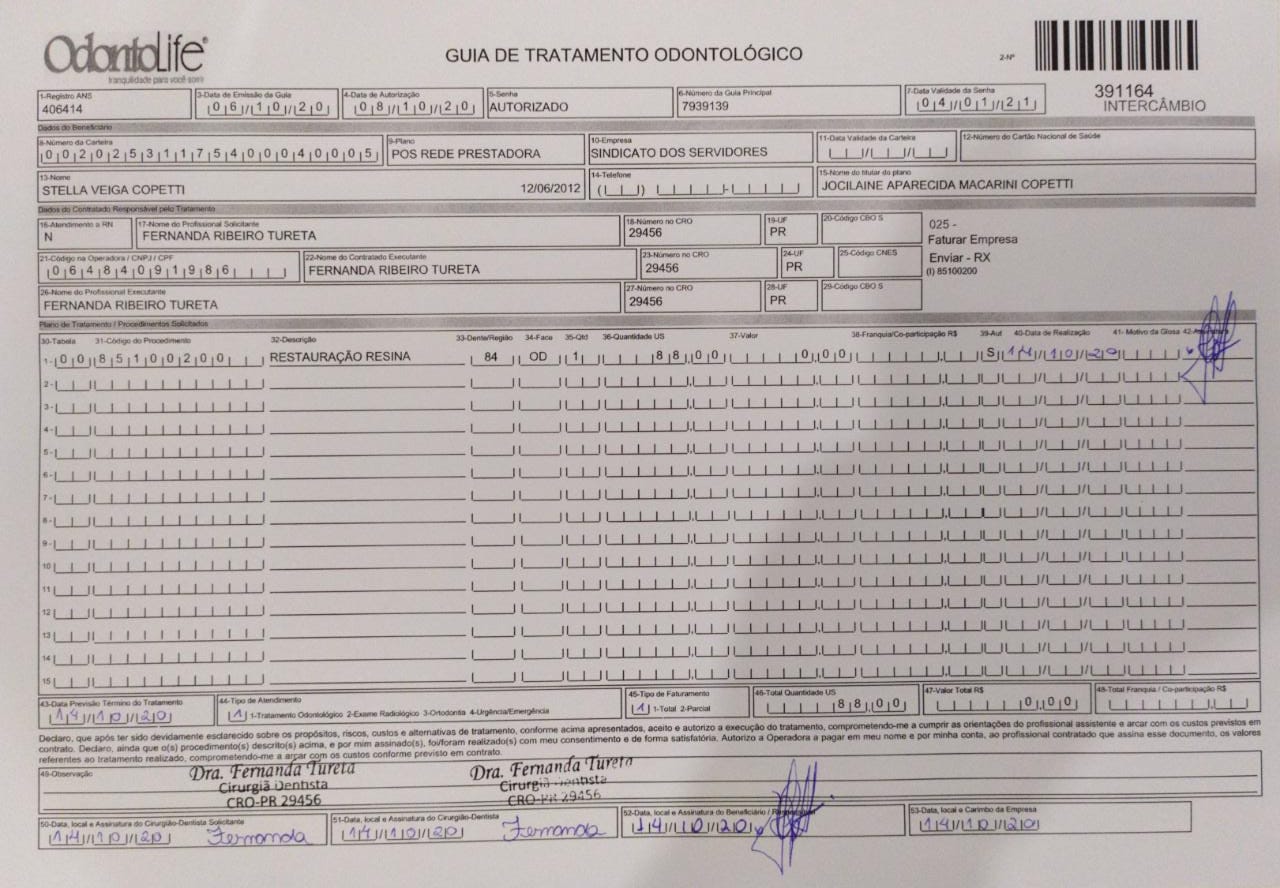 OdontoLife®
tranquilidade para você sorrir
GUIA DE TRATAMENTO ODONTOLÓGICO
2-Nº
391164
INTERCÂMBIO
1-Registro ANS 3-Data de Emissão da Guia 4-Data de Autorização 5-Senha 6-Número da Guia Principal 7-Data Validade da Senha
406414 06/10/20 08/10/20 AUTORIZADO 7939139 04/01/21
Dados do Beneficiário
8-Número da Carteira 9-Plano 10-Empresa 11-Data Validade da Carteira 12-Número do Cartão Nacional de Saúde
00202531175400040005 POS REDE PRESTADORA SINDICATO DOS SERVIDORES
13-Nome 14-Telefone 15-Nome do titular do plano
STELLA VEIGA COPETTI 12/06/2012 JOCILAINE APARECIDA MACARINI COPETTI
Dados do Contratado Responsável pelo Tratamento
16-Atendimento a RN 17-Nome do Profissional Solicitante 18-Número no CRO 19-UF 20-Código CBO S
N FERNANDA RIBEIRO TURETA 29456 PR
025 -
Faturar Empresa
Enviar - RX
(I) 85100200
21-Código na Operadora / CNPJ / CPF 22-Nome do Contratado Executante 23-Número no CRO 24-UF 25-Código CNES
06484091986 FERNANDA RIBEIRO TURETA 29456 PR
26-Nome do Profissional Executante 27-Número no CRO 28-UF 29-Código CBO S
FERNANDA RIBEIRO TURETA 29456 PR
Plano de Tratamento / Procedimentos Solicitados
30-Tabela 31-Código do Procedimento 32-Descrição 33-Dente/Região 34-Face 35-Qtd 36-Quantidade US 37-Valor 38-Franquia/Co-participação R$ 39-Aut 40-Data de Realização 41- Motivo da Glosa 42-
1- 00 85100200 RESTAURAÇÃO RESINA 84 OD 1 88,00 0,00 S 14/10/20
2-
3-
4-
5-
6-
7-
8-
9-
10
11
12
13
14
15
43-Data Previsão Término do Tratamento 44-Tipo de Atendimento 45-Tipo de Faturamento 46-Total Quantidade US 47-Valor Total R$ 48-Total Franquia / Co-participação R$
14/10/20 1 1-Tratamento Odontológico 2-Exame Radiológico 3-Ortodontia 4-Urgência/Emergência 1 1-Total 2-Parcial 88,00 0,00
Declaro, que após ter sido devidamente esclarecido sobre os propósitos, riscos, custos e alternativas de tratamento, conforme acima apresentados, aceito e autorizo a execução do tratamento, comprometendo-me a cumprir as orientações do profissional assistente e arcar com os custos previstos em
contrato. Declaro, ainda que o(s) procedimento(s) descrito(s) acima, e por mim assinado(s), foi/foram realizado(s) com meu consentimento e de forma satisfatória. Autorizo a Operadora a pagar em meu nome e por minha conta, ao profissional contratado que assina esse documento, os valores
referentes ao tratamento realizado, comprometendo-me a arcar com os custos conforme previsto em contrato.
49-Observação
Dra. Fernanda Tureta Dra. Fernanda Tureta
Cirurgiã Dentista Cirurgiã Dentista
CRO-PR 29456 CRO-PR 29456
50-Data, local e Assinatura do Cirurgião-Dentista Solicitante 51-Data, local e Assinatura do Cirurgião-Dentista 52-Data, local e Assinatura do Beneficiário / 53-Data, local e Carimbo da Empresa
14/10/20 Fernanda 14/10/20 Fernanda 14/10/20 14/10/20